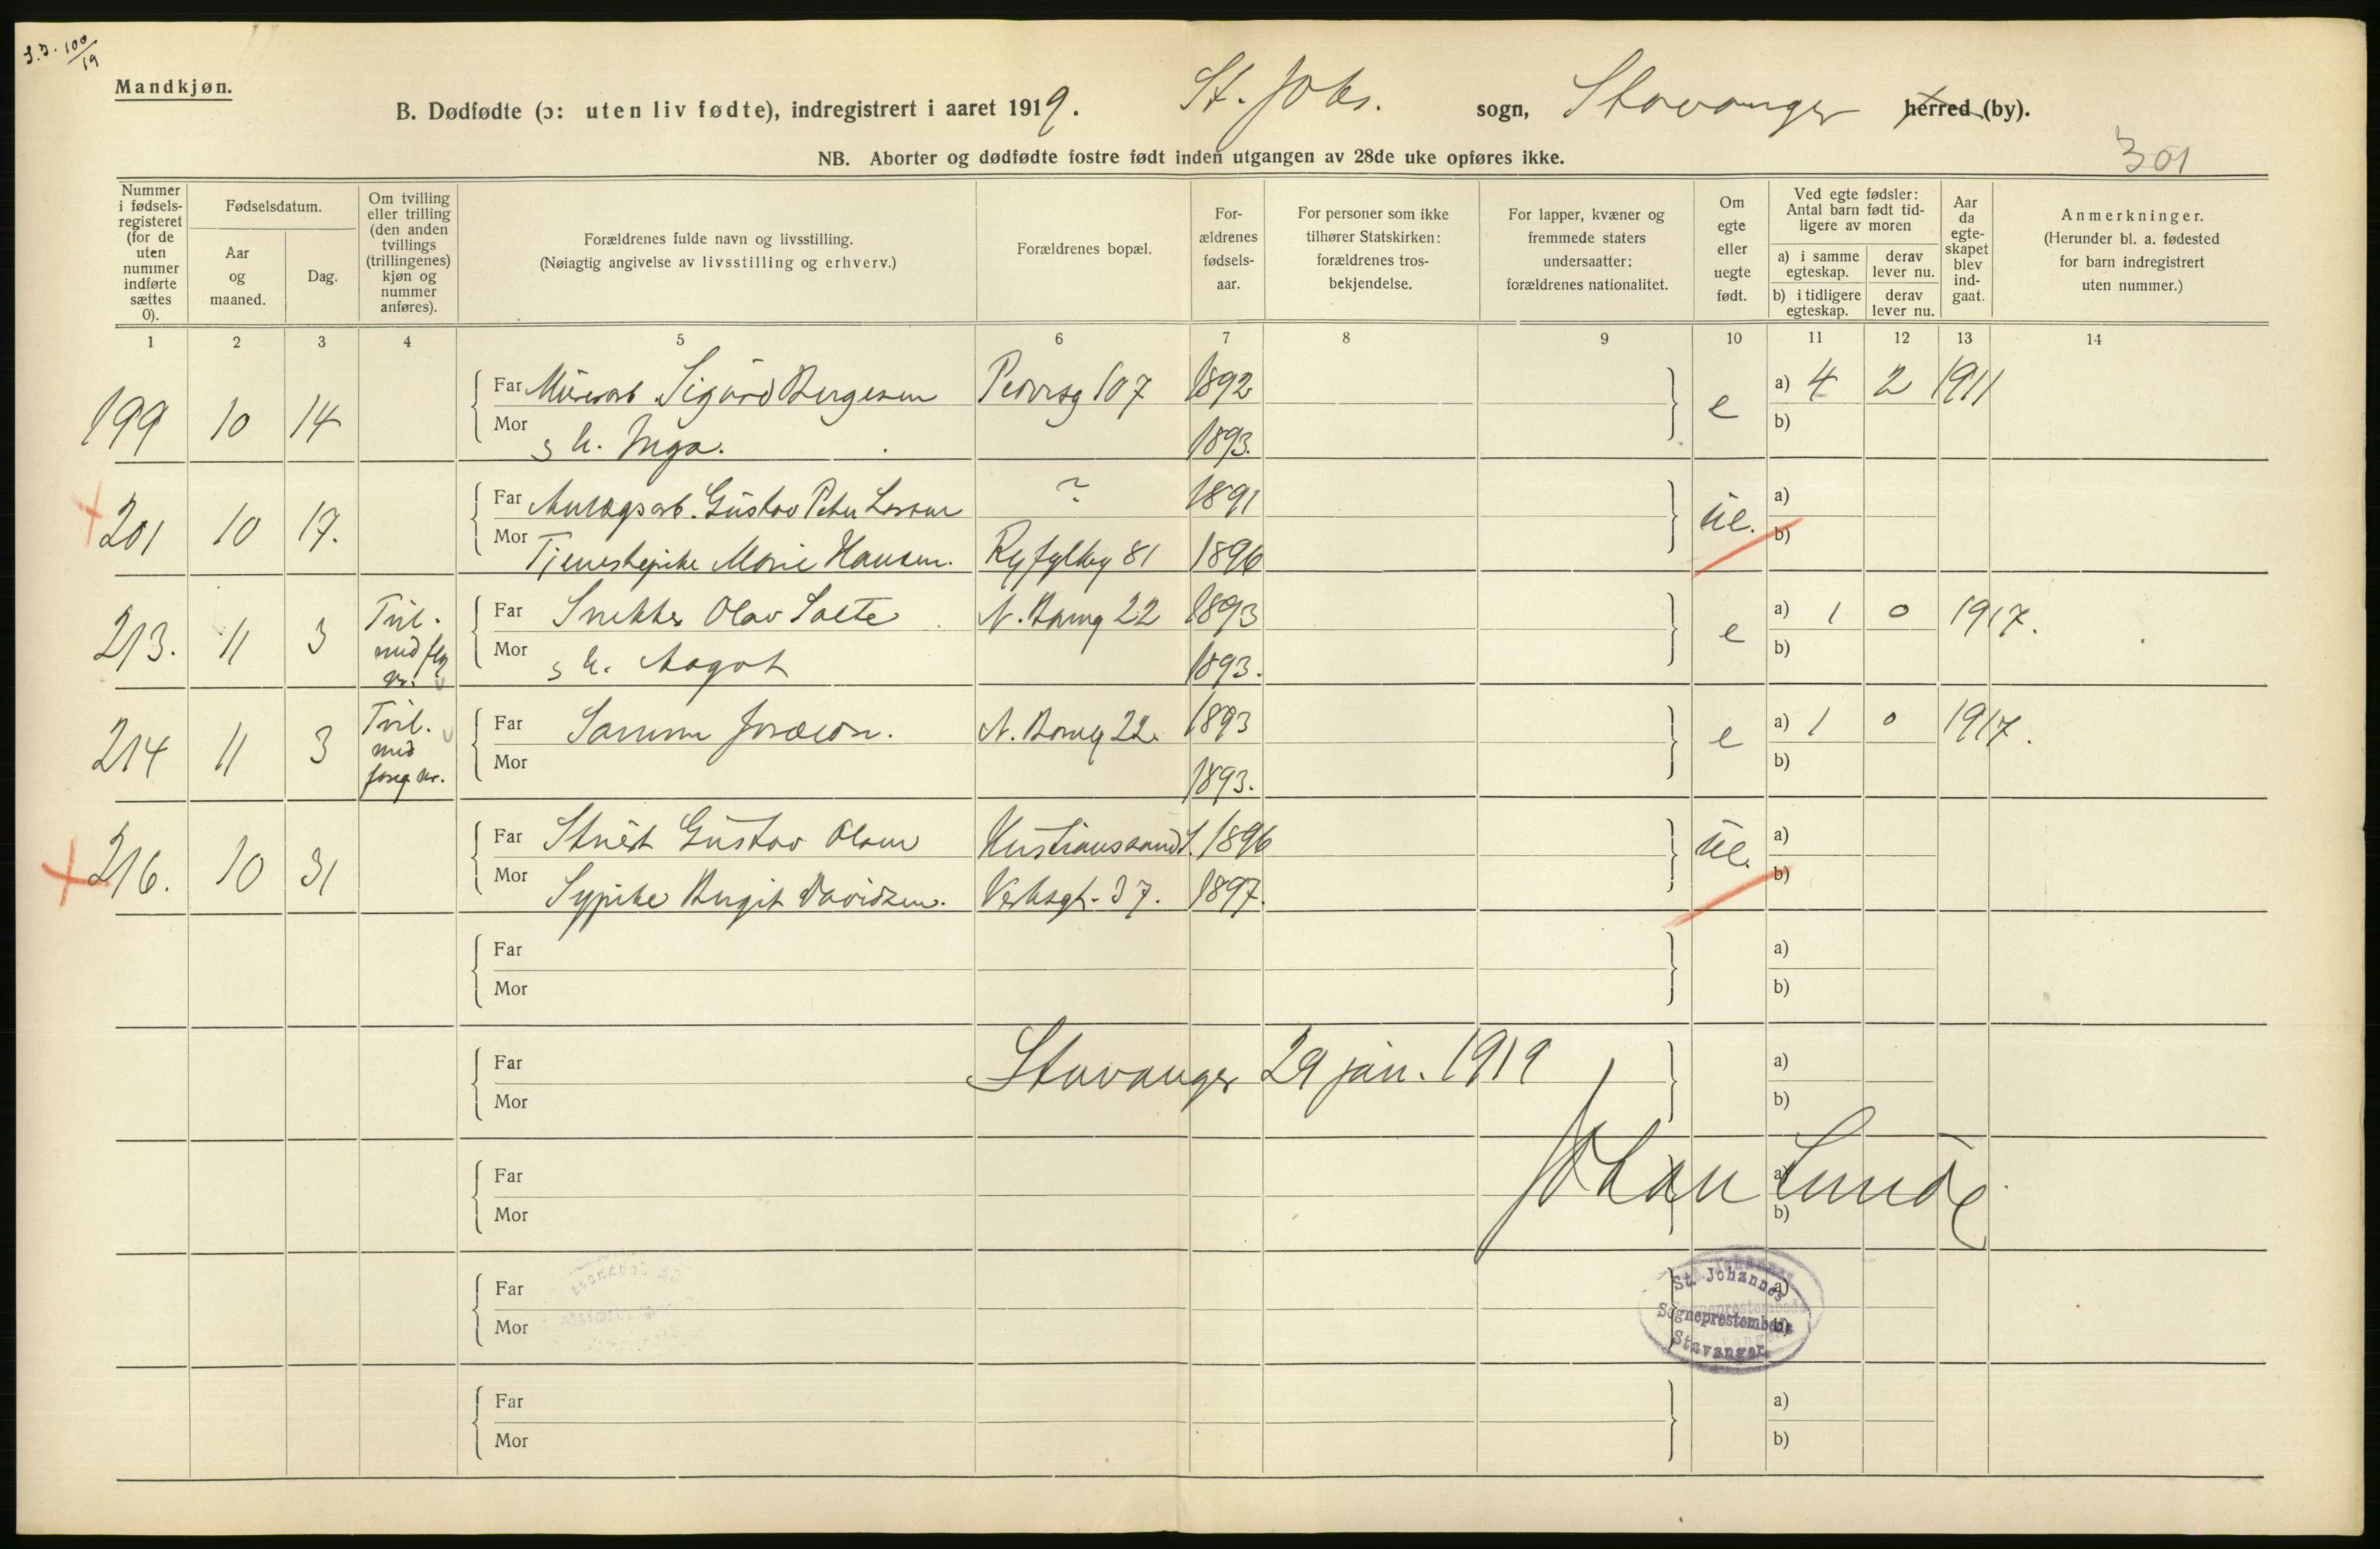 S.J. 100/19
Mandkjøn.
B. Dødfødte (ɔ: uten liv fødte), indregistrert i aaret 1919. St. Johs. sogn, Stavanger herred (by).
NB. Aborter og dødfødte fostre født inden utgangen av 28de uke opføres ikke.
301
Nummer i fødselsregisteret (for de uten nummer indførte sættes 0).
Fødselsdatum.
Aar og maaned.
Dag.
Om tvilling eller trilling (den anden tvillings (trillingenes) kjøn og nummer anføres).
Forældrenes fulde navn og livsstilling.
(Nøiagtig angivelse av livsstilling og erhverv.)
Forældrenes bopæl.
For-ældrenes fødsels-aar.
For personer som ikke tilhører Statskirken: forældrenes tros-bekjendelse.
For lapper, kvæner og fremmede staters undersaatter: forældrenes nationalitet.
Om egte eller uegte født.
Ved egte fødsler: Antal barn født tid-ligere av moren
a) i samme egteskap.
derav lever nu.
b) i tidligere egteskap.
derav lever nu.
Aar da egte-skapet blev ind-gaat.
Anmerkninger.
(Herunder bl. a. fødested for barn indregistrert uten nummer.)
1 2 3 4 5 6 7 8 9 10 11 12 13 14
199 10 14 Far Murerarb Sigurd Bergesen Pedersg 107 1892 e a) 4 2 1911
Mor s h. Inga. 1893. b)
201 10 17. Far Anlægsarb. Gustav Peter Larsen ? 1891 ue. a)
Mor Tjenestepike Marie Hansen. Ryfylkeg 81 1896 b)
213. 11 3 Tvil. med flg nr. Far Snekker Olav Salte N. Baneg 22 1893 e a) 1 0 1917.
Mor s h. Aagot 1893. b)
214 11 3 Tvil. med foreg nr. Far Samme foræLDre. N. Baneg 22. 1893 e a) 1 0 1917.
Mor 1893. b)
216. 10 31 Far Stuert Gustav Olsen Kristianssand S. 1896 ue. a)
Mor Sypike Birgit Davidsen. Verksgt. 37. 1897. b)
Far a)
Mor b)
Far Stavanger 29 jan. 1919 a)
Mor b)
Far Johan Lunde a)
Mor b)
Far a)
Mor b)
St. Johannes
Sogneprestembede
Stavanger.
Far a)
Mor b)